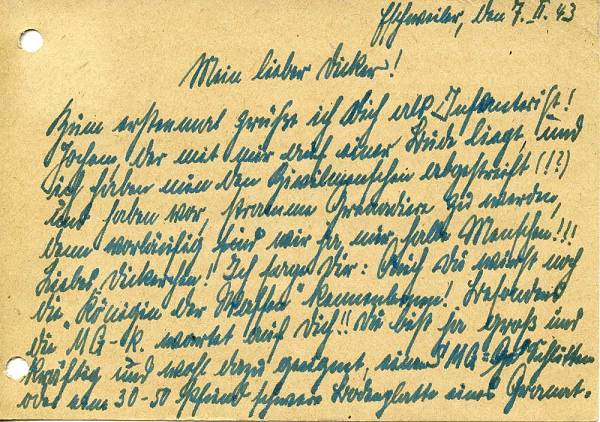 Eschweiler, den 7. II. 43
Mein lieber Dicker!
Zum erstenmal grüße ich Dich als Infanterist!
Jochem, der mit mir auf einer Bude liegt, und
ich haben nun den Zivilmenschen abgestreift (!?)
und haben vor, stramme Grenadiere zu werden,
denn vorläufig sind wir ja nur halbe Menschen!!!
Liebes Dickerchen! Ich sage Dir: Auch Du wirst noch
die "Königin der Waffen" kennenlernen! Besonders
die MG-K. wartet auf Dich!! Du bist ja groß und
kräftig und wohl dazu geeignet, einen MG= Schlitten
oder eine 30-50 Pfund schwere Bodenplatte eines Granat-